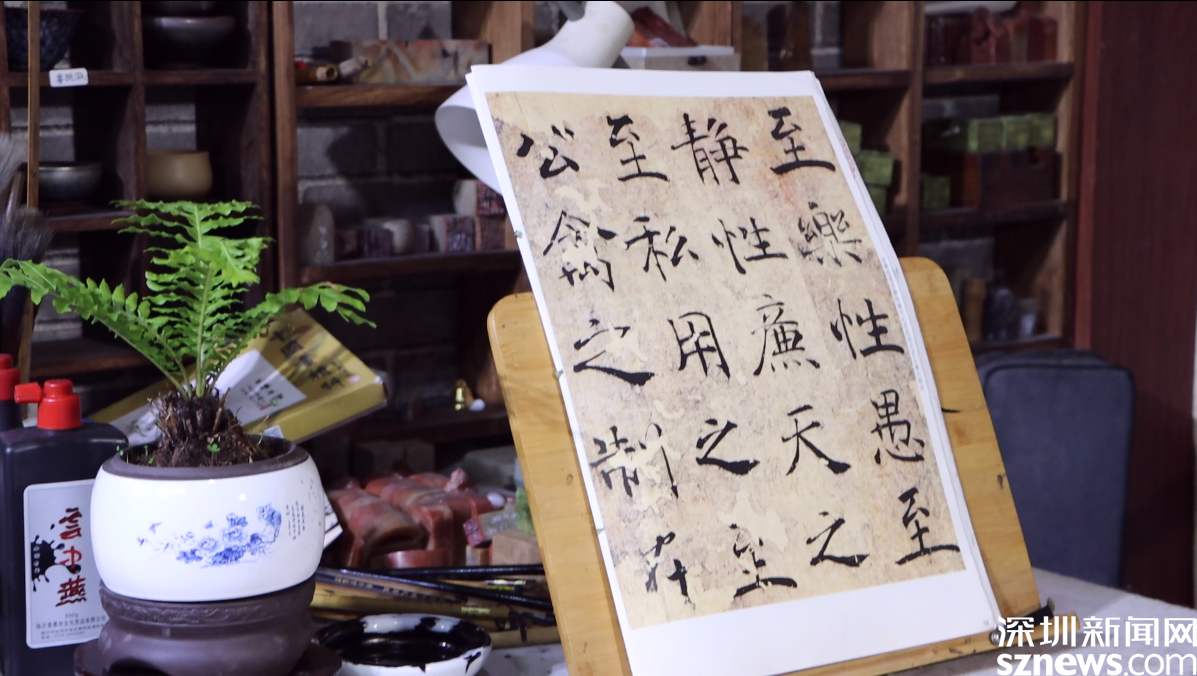 至樂性愚至
靜性廉天之
至私用之至
公禽之制在
500g
深圳新闻网
sznews.com